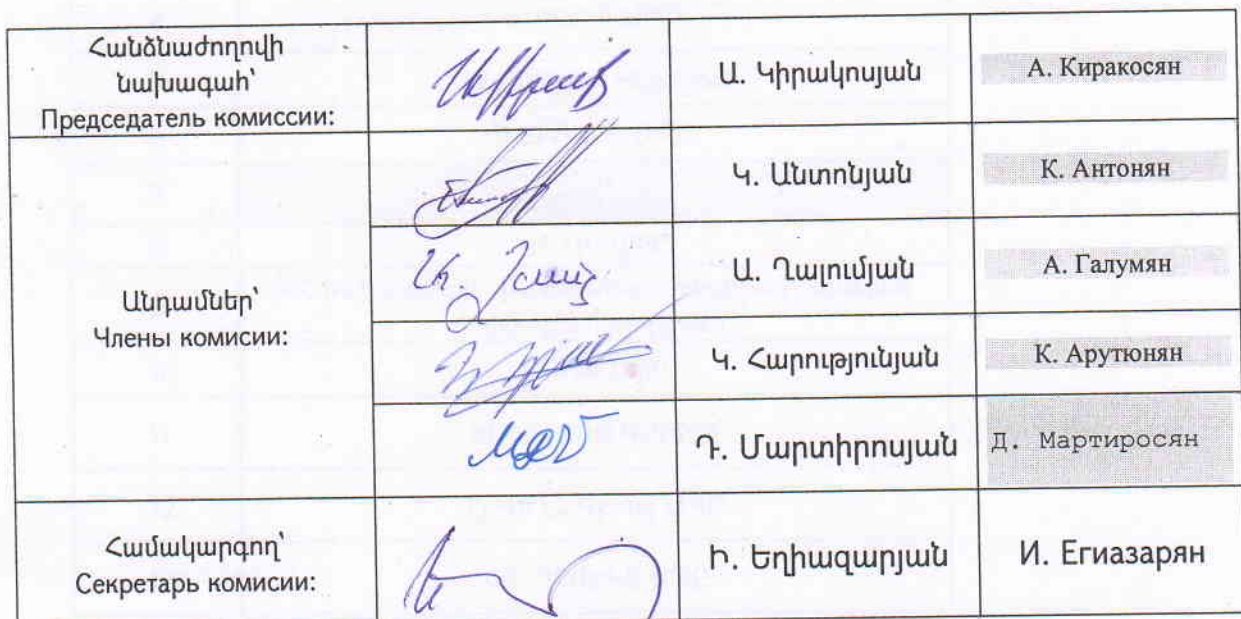 Հանձնաժողովի
նախագահ՝
Председатель комиссии:
Ա. Կիրակոսյան
А. Киракосян
Կ. Անտոնյան
К. Антонян
Անդամներ՝
Члены комисии:
Ա. Ղալումյան
А. Галумян
Կ. Հարությունյան
К. Арутюнян
Դ. Մարտիրոսյան
Д. Мартиросян
Համակարգող՝
Секретарь комисии:
Ի. Եղիազարյան
И. Егиазарян